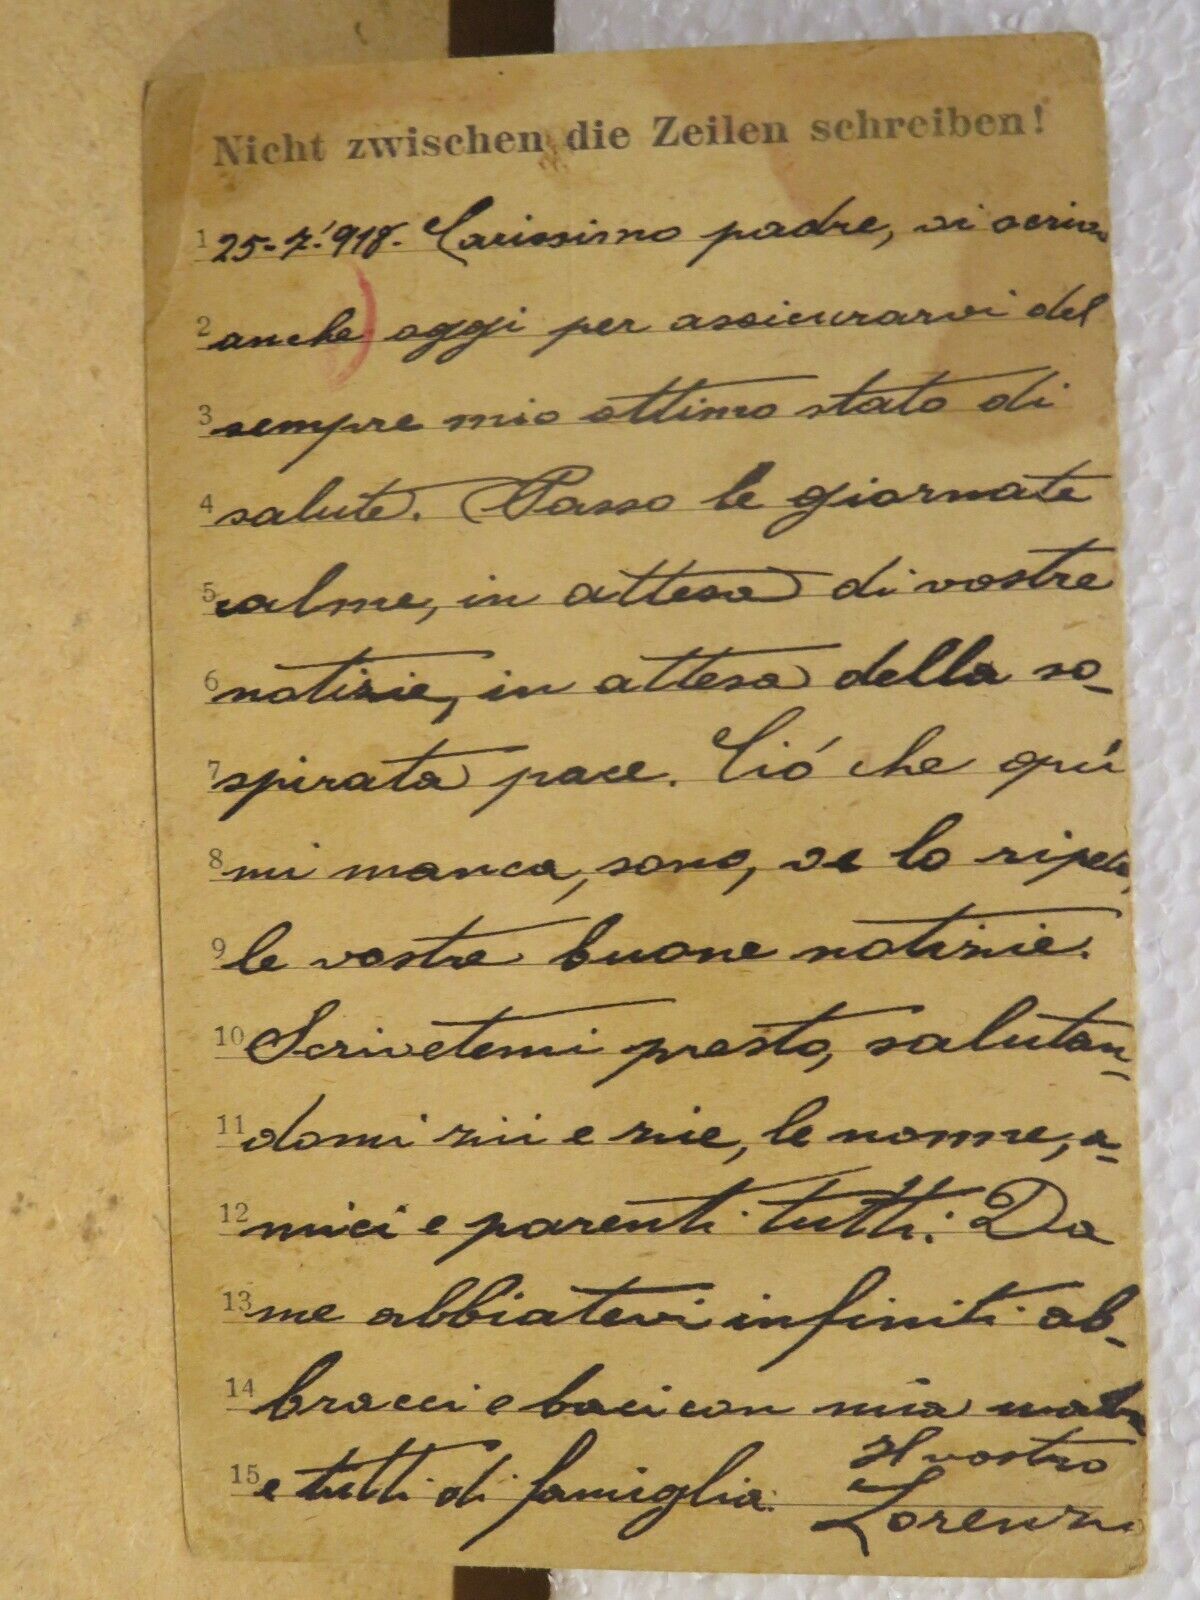 Nicht zwischen die Zeilen schreiben!
1 25-7-'918. Carissimo padre, vi scrivo
2 anche oggi per assicurarvi del
3 sempre mio ottimo stato di
4 salute. Passo le giornate
5 calme, in attesa di vostre
6 notizie, in attesa della so-
7 spirata pace. Ció che quí
8 mi manca, sono, ve lo ripeto,
9 le vostre buone notizie.
10 Scrivetemi presto, salutan-
11 domi zii e zie, le nonne, a-
12 mici e parenti tutti. Da
13 me abbiatevi infiniti ab-
14 bracci e baci con mia madre
15 e tutti di famiglia. Il vostro
Lorenzo